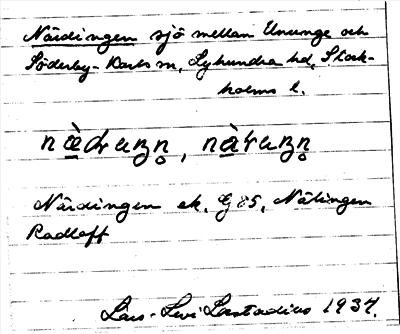 Närdingen sjö mellan Ununge och
Söderby-Karls sn, Lyhundra hd, Stock-
holms l.
Närdingen ek. G 85, Nälingen
Radloff
Lars-Levi Læstadius 1937.